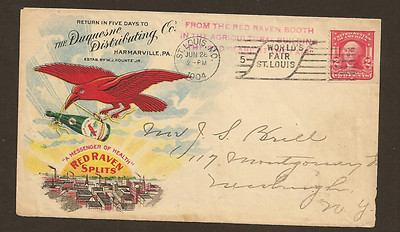 RETURN IN FIVE DAYS TO
The Duquesne
Distributing, Co.
HARMARVILLE, PA.
ESTAB. BY W.J. KOUNTZ JR.
ST. LOUIS, MO.
JUN 26
2-PM
1904
FROM THE RED RAVEN BOOTH
IN THE
WORLD'S
FAIR
ST. LOUIS
5
Mr J S Brill
1119 Montgomery
Newburgh
N Y
"A MESSENGER OF HEALTH"
RED RAVEN
SPLITS